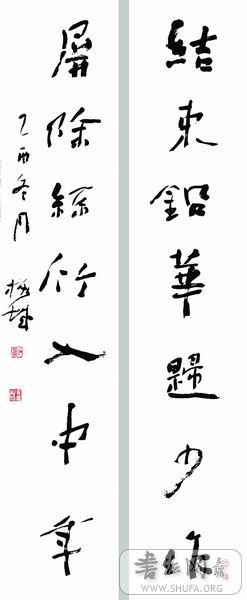 結束鉛華歸少作
屏除絲竹入中年
乙酉冬月
WWW.SHUFA.ORG